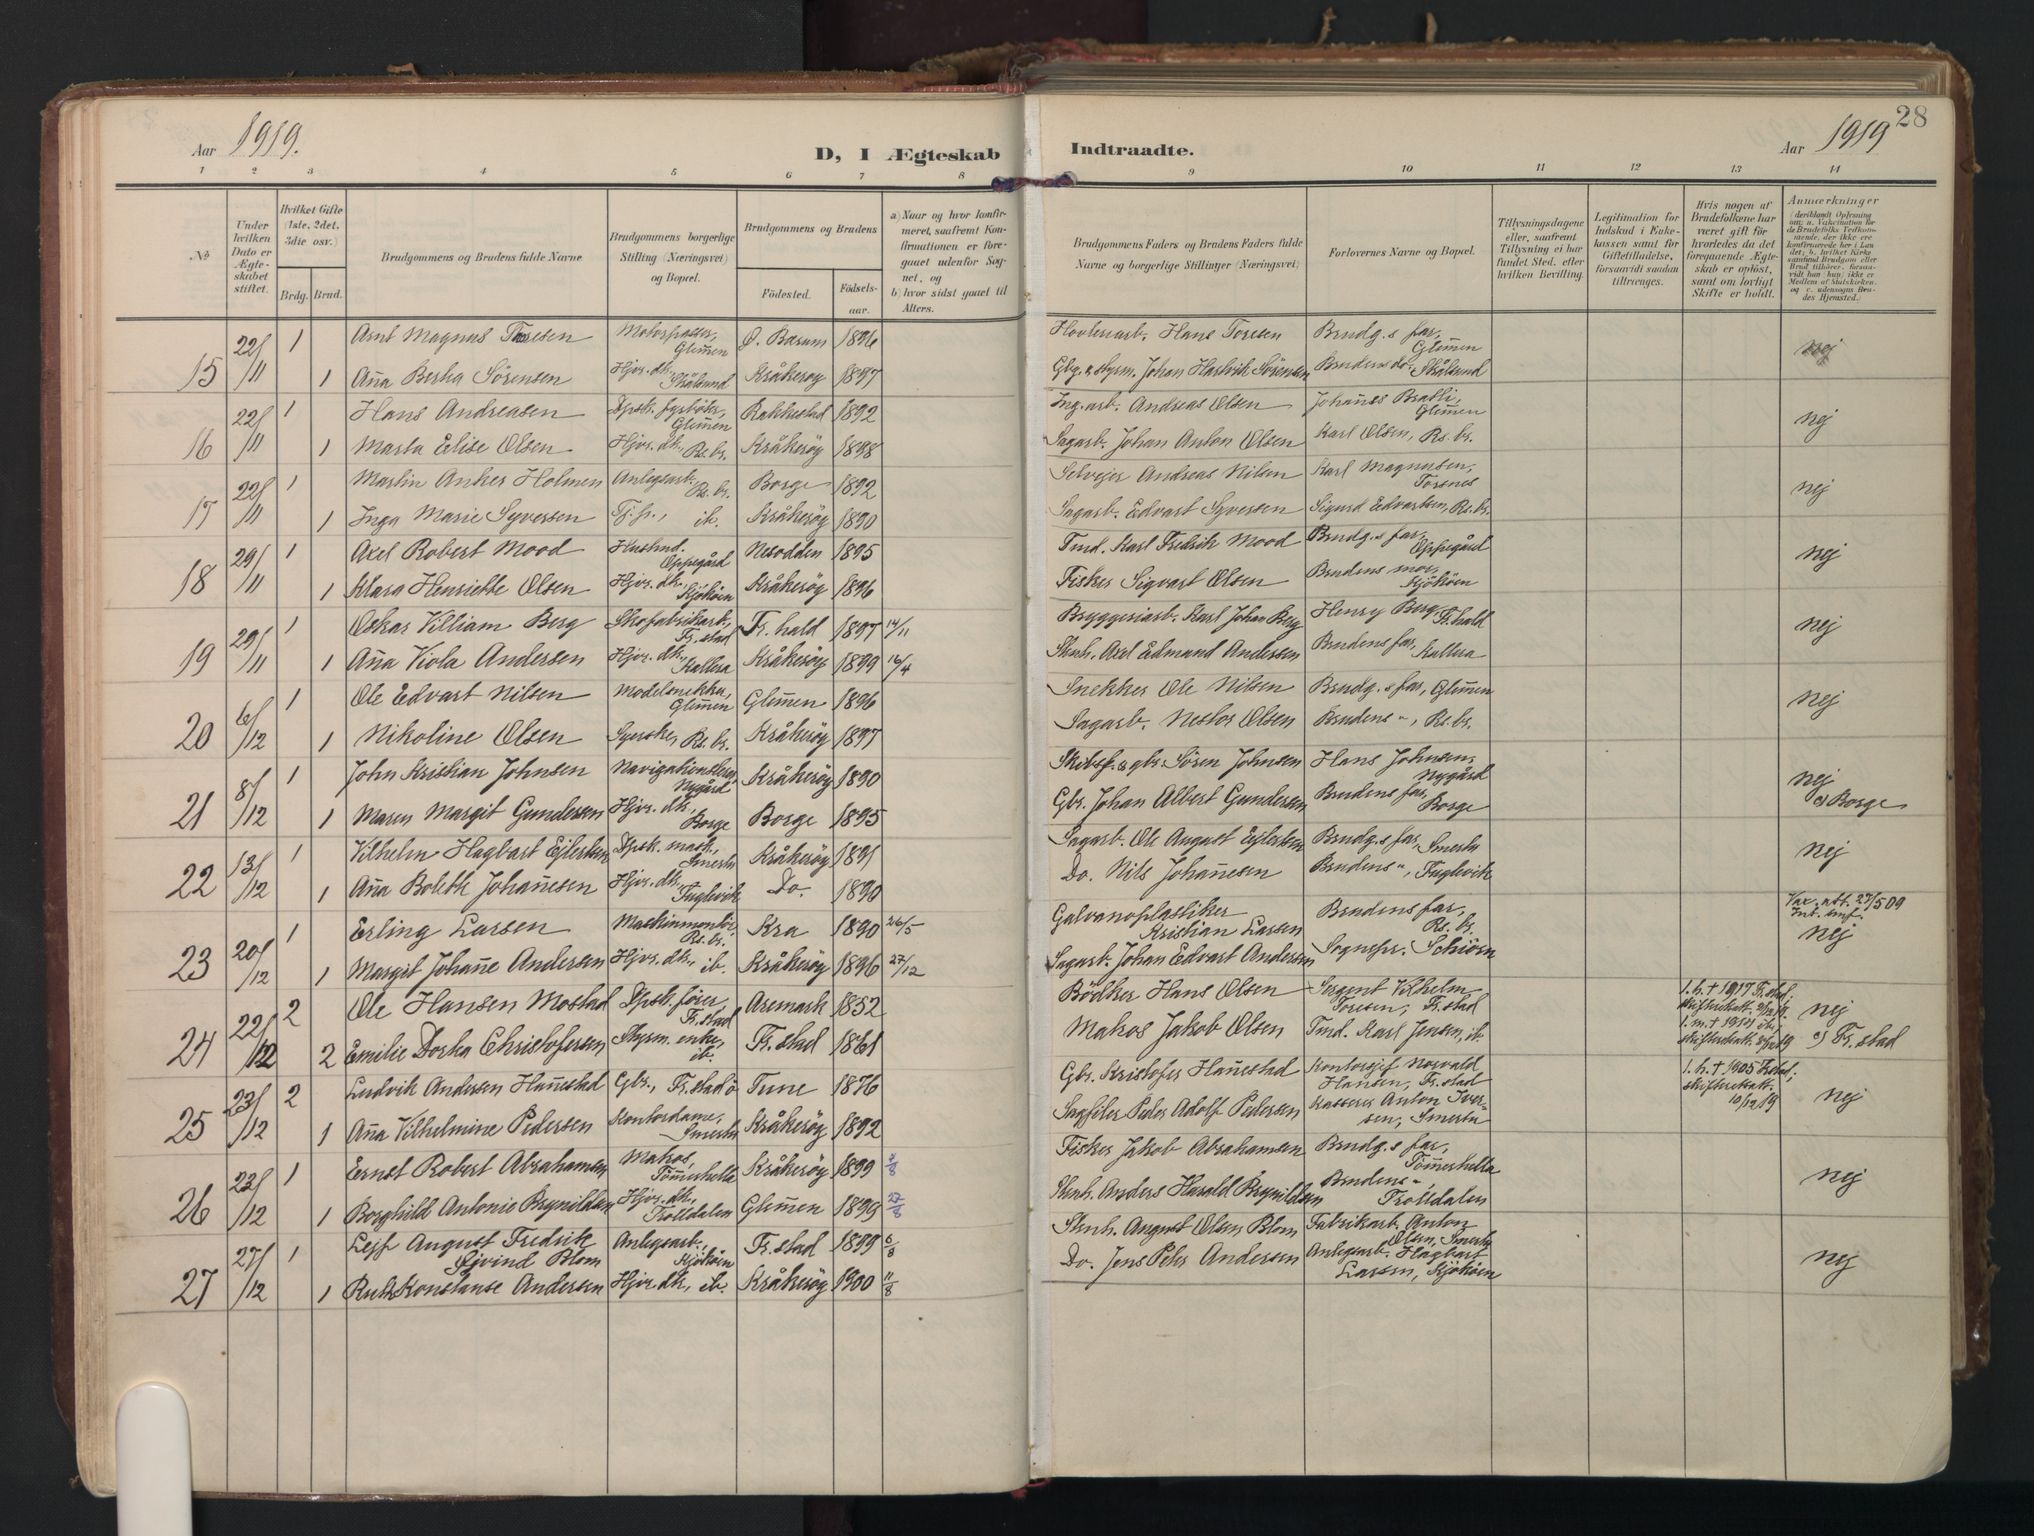 28
Aar 1919.
D, I Ægteskab Indtraadte.
Aar 1919
1 2 3 4 5 6 7 8 9 10 11 12 13 14
No
Under hvilken Dato er Ægteskabet stiftet.
Hvilket Gifte (1ste, 2det, 3die osv.)
Brdg. Brud.
Brudgommens og Brudens fulde Navne
Brudgommens borgerlige Stilling (Næringsvei) og Bopæl.
Brudgommens og Brudens
Fødested.
Fødselsaar.
a) Naar og hvor konfirmeret, saafremt Konfirmationen er foregaaet udenfor Sognet, og
b) hvor sidst gaaet til Alters.
Brudgommens Faders og Brudens Faders fulde Navne og borgerlige Stillinger (Næringsvei)
Forlovernes Navne og Bopæl.
Tillysningsdagene eller, saafremt Tillysning ei har fundet Sted, efter hvilken Bevilling.
Legitimation for Indskud i Enkekassen samt for Giftetilladelse, forsaavidt saadan tiltrænges.
Hvis nogen af Brudefolkene har været gift før hvorledes da det foregaaende Ægteskab er opløst, samt om lovligt Skifte er holdt.
Anmærkninger
15 22/11 1 Arnt Magnus Toresen Motorpasser, Glem̄en Ø. Bærum 1896 Hans Toresen Brudg.s far, Glem̄en nej
1 An̄a Berta Sörensen Hjv. dtr., Skålsund Kråkeröy 1897 Gbg. & styrm. Johan Hartvik Sörensen Brudens do. Skålsund
16 22/11 1 Hans Andreasen Dpsk. fyrböter, Glem̄en Rakkestad 1892 Ing. arb. Andreas Olsen Johan̄es Bratli, Glem̄en nej
1 Marta Elise Olsen Hjv. dtr., Rs. br. Kråkeröy 1898 Sagarb. Johan Anton Olsen Karl Olsen, Rs. br.
17 22/11 1 Martin Anker Holmen Anlegsarb. Rs. br. Borge 1892 Selvejer Andreas Nilsen Karl Magnusen, Torsnes nej
1 Inga Marie Syversen Tj. p., ib. Kråkeröy 1890 Sagarb. Edvart Syversen Sigurd Edvartsen, Rs. br.
18 29/11 1 Axel Robert Mood Husmd. Oppegård Nesodden 1895 Tmd. Karl Fredrik Mood Brudg.s far, Oppegård nej
1 Klara Henriette Olsen Hjv. dtr., Kjököen Kråkeröy 1896 Fisker Sigvart Olsen Brudens mor, Kjököen
19 29/11 1 Oskar Villiam Berg Skofabrikarb., Fr. stad Fr. hald 1897 14/11 Bryggeriarb. Karl Johan Berg Henry Berg, Fr. hald nej
1 An̄a Viola Andersen Hjv. dtr., Kallera Kråkeröy 1899 16/4 Stenh. Axel Edmund Andersen Brudens far, Kallera
20 6/12 1 Ole Edvart Nilsen Modelsnekker, Glem̄en Glem̄en 1896 Snekker Ole Nilsen Brudg.s far, Glem̄en nej
1 Nikoline Olsen Syerske, Rs. br. Kråkeröy 1897 Sagarb. Nestor Olsen Brudens ", Rs. br.
21 8/12 1 John Kristian Johnsen Navigationslærer, Nygård Kråkeröy 1890 Skibsf. & gbr. Sören Johnsen Hans Johnsen, Nygård nej
1 Maren Margit Gundersen Hjv. dtr., Borge Borge 1895 Gbr. Johan Albert Gundersen Brudens far, Borge c) Borge
22 13/12 1 Vilhelm Hagbart Ejlertsen Dpsk. mask., Smertu Kråkeröy 1891 Sagarb. Ole August Ejlertsen Brudg.s far, Smertu nej
1 An̄a Bolette Johan̄esen Hjv. dtr., Fuglevik Do. 1890 Do. Nils Johan̄esen Brudens ", Fuglevik
23 20/12 1 Erling Larsen Maskinmontör, Rs. br. Kra 1890 26/5 Galvanoplastiker Kristian Larsen Brudens far, Rs. br. Vax. att. 27/5 09 nej
1 Margit Johan̄e Andersen Hjv. dtr., ib. Kråkeröy 1896 27/12 Sagarb. Johan Edvart Andersen Sognepr. Schiörn
24 22/12 2 Ole Hansen Mostad Dpsk. förer, Fr. stad Aremark 1852 Bödker Hans Olsen Sergent Vilhelm Toresen, Fr. stad 1. h. † 1917 Fr. stad, nej
2 Emilie Dorthea Christofersen Styrm. enke, ib. Fr. stad 1861 Matros Jakob Olsen Tmd. Karl Jensen, ib. c) Fr. stad
25 23/12 2 Ludvik Andersen Han̄estad Gbr., Fr. stad ö Tune 1876 Gbr. Kristofer Han̄estad Kontorsjef Norvald Hansen, Fr. stad 1. h. † 1905 skifteretsatt. 10/12 19 nej
1 An̄a Vilhelmine Pedersen Kontordame, Smertu Kråkeröy 1892 Sagfiler Peder Adolf Pedersen Kasserer Anton Iversen, Smertu
26 23/12 1 Ernst Robert Abrahamsen Matros, Töm̄erhella Kråkeröy 1899 Fisker Jakob Abrahamsen Brudg.s far, Töm̄erhella nej
1 Borghild Antonie Brynildsen Hjv. dtr., Trolldalen Glem̄en 1899 27/8 Stenh. Anders Harald Brynildsen Brudens ", Trolldalen
27 27/12 1 Lejf August Fredrik Ejvind Blom Anlegsarb., Kjököen Fr. stad 1899 6/8 Stenh. August Olsen Blom Fabrikarb. Anton Olsen, Smertu nej
1 Rut Konstanse Andersen Hjv. dtr., ib. Kråkeröy 1900 11/8 Do. Jens Peter Andersen Anlegsarb. Hagbart Larsen, Kjököen